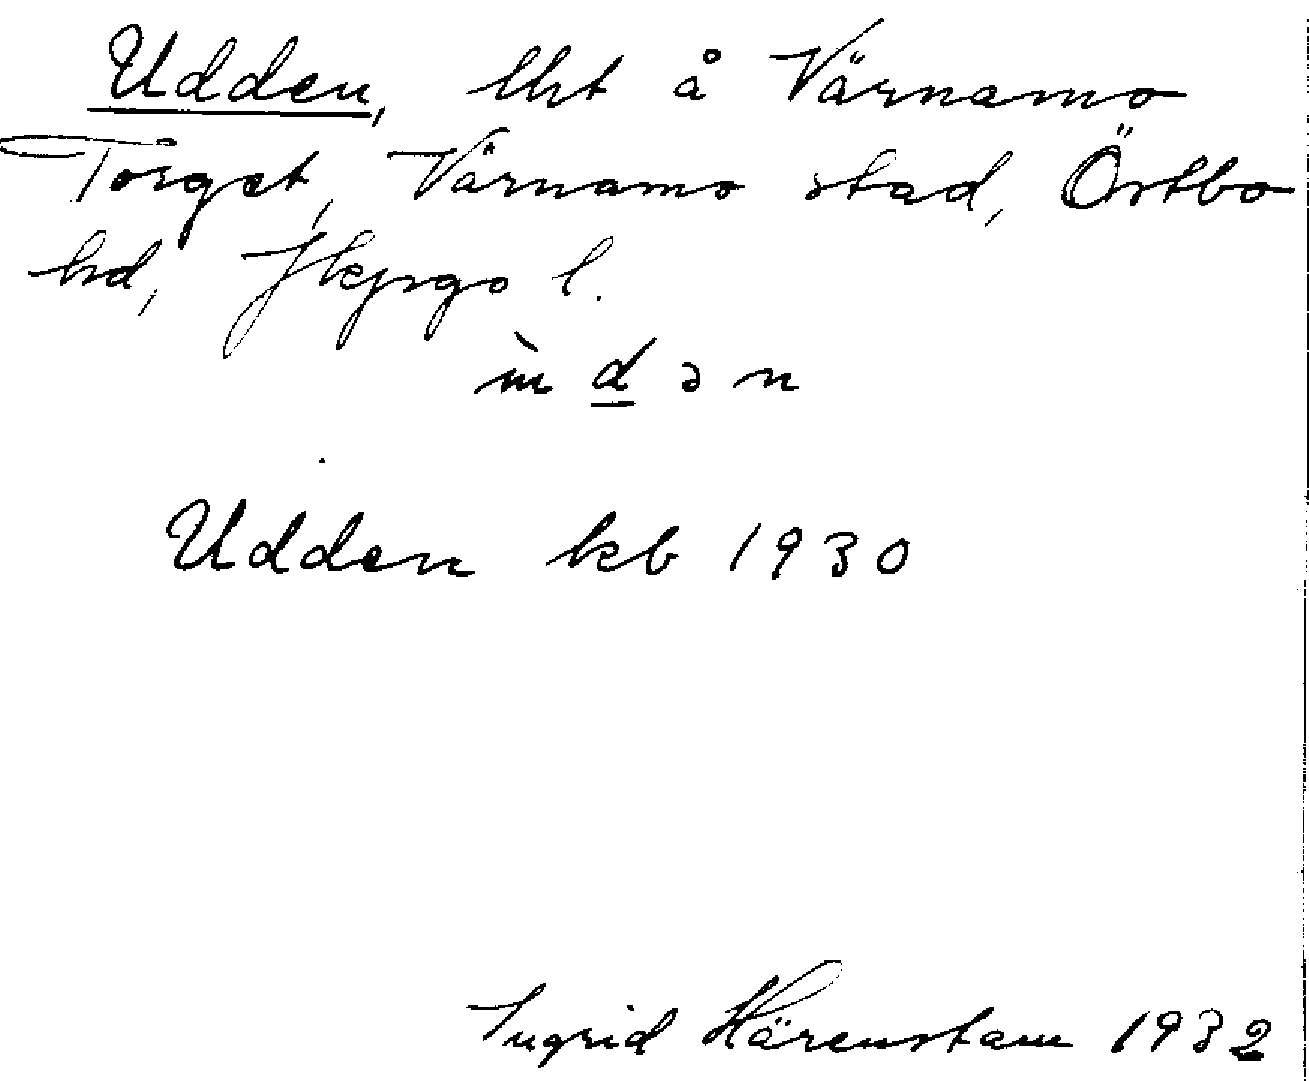 Udden, lht å Värnamo
Torget, Värnamo stad, Östbo
hd, Jkpgs l.
ùd̲ən
Udden kb 1930
Ingrid Härenstam 1932